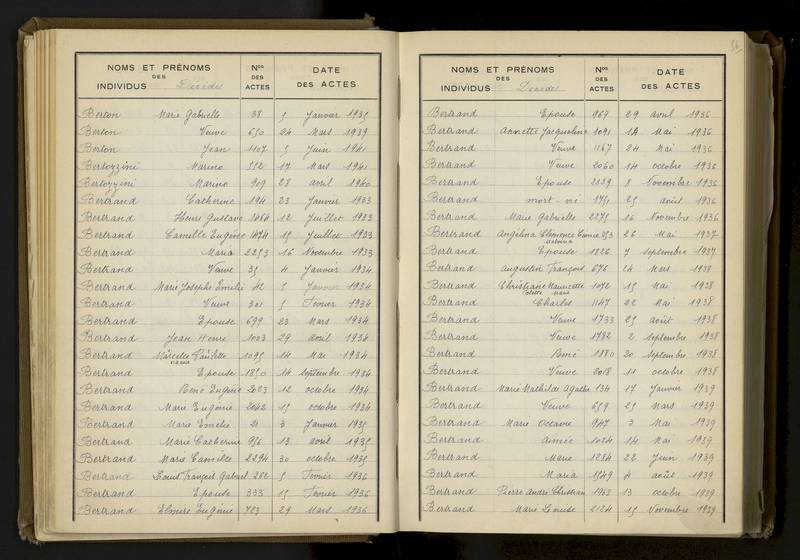 NOMS ET PRÉNOMS DES INDIVIDUS Décédés
Nos DES ACTES
DATE DES ACTES
Berton Marie Gabrielle 38 5 Janvier 1935
Berton Veuve 650 24 Mars 1939
Berton Jean 1107 5 Juin 1941
Bertozzini Marino 552 17 Mars 1941
Bertozzini Marino 909 28 avril 1940
Bertrand Catherine 194 23 Janvier 1933
Bertrand Henri Gustave 12 Juillet 1933
Bertrand Camille Eugène 1474 15 Juillet 1933
Bertrand Maria 2253 16 Novembre 1933
Bertrand Veuve 35 4 Janvier 1934
Bertrand Marie Josephe Emélie 42 5 Janvier 1934
Bertrand Veuve 301 5 Fevrier 1934
Bertrand Epouse 699 23 Mars 1934
Bertrand Jean Henri 1003 29 avril 1934
Bertrand Marcelle Paulette 1095 14 Mai 1934
Bertrand Epouse 1850 14 septembre 1934
Bertrand René Eugène 2023 12 octobre 1934
Bertrand Marie Eugénie 2042 15 octobre 1934
Bertrand Marie Emélie 21 3 Janvier 1935
Bertrand Marie Catherine 956 13 avril 1935
Bertrand Marie Camille 2294 30 octobre 1935
Bertrand Louis François 262 5 Fevrier 1936
Bertrand Epouse 333 15 Fevrier 1936
Bertrand Elmire Eugénie 723 29 Mars 1936
56
NOMS ET PRÉNOMS DES INDIVIDUS Décédés
Nos DES ACTES
DATE DES ACTES
Bertrand Epouse 969 29 avril 1936
Bertrand Annette Jacqueline 1091 Mai 1936
Bertrand Veuve 1167 24 Mai 1936
Bertrand Veuve 2060 14 octobre 1936
Bertrand Epouse 2229 8 Novembre 1936
Bertrand mort-né 1751 25 août 1936
Bertrand Marie Gabrielle 2275 16 Novembre 1936
Bertrand Angélina Clémence 26 Mai 1937
Bertrand Epouse 1826 7 septembre 1937
Bertrand Augustin François 676 24 Mars 1938
Bertrand Christiane Mauricette 1092 15 Mai 1938
Colette Maria
Bertrand Charles 1147 22 Mai 1938
Bertrand Veuve 1733 25 août 1938
Bertrand Veuve 1782 2 septembre 1938
Bertrand René 1880 20 septembre 1938
Bertrand Veuve 2018 11 octobre 1938
Bertrand Marie Mathilde Agathe 134 17 Janvier 1939
Bertrand Veuve 659 25 Mars 1939
Bertrand Marie Octavie 947 3 Mai 1939
Bertrand aimée 1024 14 Mai 1939
Bertrand Marie 1284 22 Juin 1939
Bertrand Maria 1549 août 1939
Bertrand Pierre André Christian 1963 13 octobre 1939
Bertrand Marie Louise 2124 15 Novembre 1939